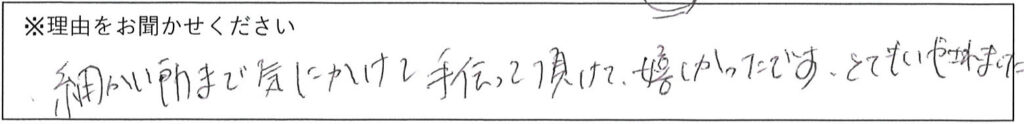 ※理由をお聞かせください
細かい所まで気にかけて手伝って頂けて、嬉しかったです、とてもいやされました